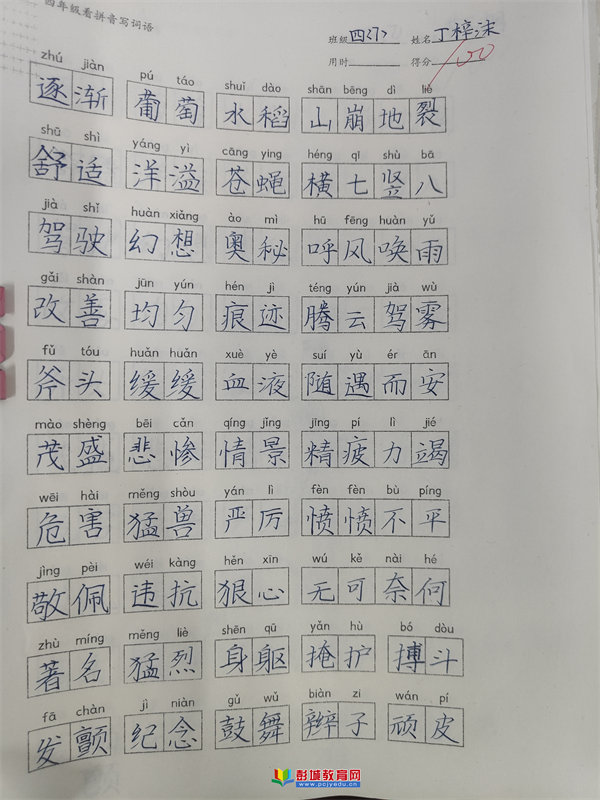 四年级看拼音写词语
班级 四(7) 姓名 丁梓沫
用时 得分 100
zhú jiàn pú táo shuǐ dào shān bēng dì liè
逐渐 葡萄 水稻 山崩地裂
shū shì yáng yì cāng ying héng qī shù bā
舒适 洋溢 苍蝇 横七竖八
jià shǐ huàn xiǎng ào mì hū fēng huàn yǔ
驾驶 幻想 奥秘 呼风唤雨
gǎi shàn jūn yún hén jì téng yún jià wù
改善 均匀 痕迹 腾云驾雾
fǔ tóu huǎn huǎn xuè yè suí yù ér ān
斧头 缓缓 血液 随遇而安
mào shèng bēi cǎn qíng jǐng jīng pí lì jié
茂盛 悲惨 情景 精疲力竭
wēi hài měng shòu yán lì fèn fèn bù píng
危害 猛兽 严厉 愤愤不平
jìng pèi wéi kàng hěn xīn wú kě nài hé
敬佩 违抗 狠心 无可奈何
zhù míng měng liè shēn qū yǎn hù bó dòu
著名 猛烈 身躯 掩护 搏斗
fā chàn jì niàn gǔ wǔ biàn zi wán pí
发颤 纪念 鼓舞 辫子 顽皮
彭城教育网
www.pcjyedu.cn